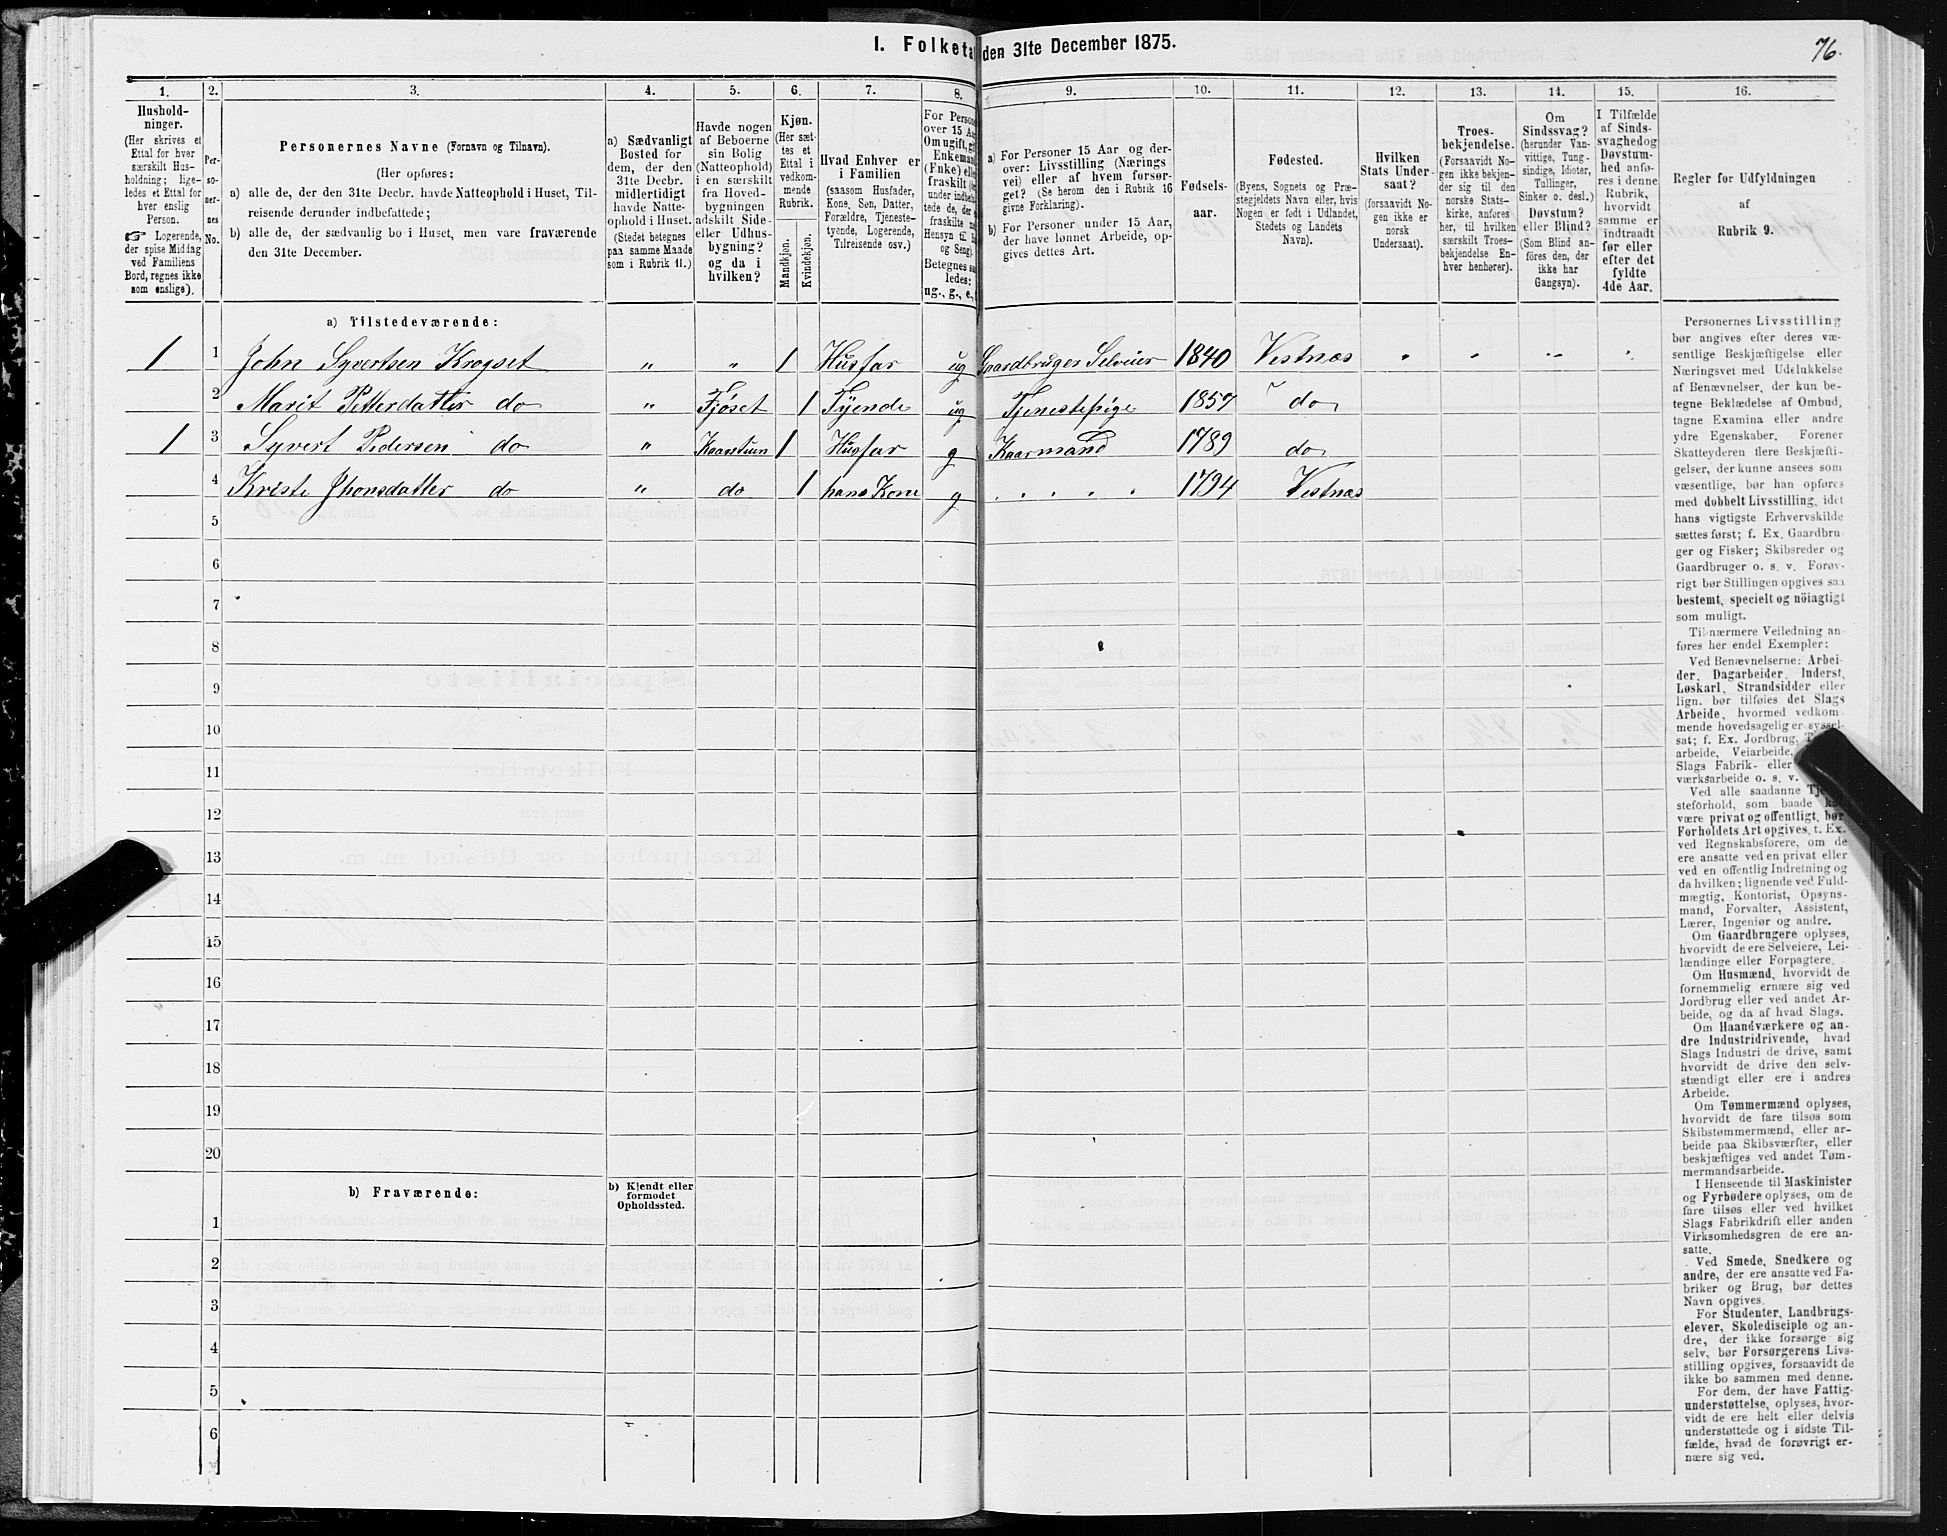 I. Folketa den 31te December 1875.
76.
1. 2. 3. 4. 5. 6. 7. 8. 9. 10. 11. 12. 13. 14. 15. 16.
Hushold-
ninger.
(Her skrives et
Ettal for hver
særskilt Hus-
holdning; lige-
ledes et Ettal for
hver enslig
Person.
☞ Logerende,
der spise Middag
ved Familiens
Bord, regnes ikke
som enslige).
Per-
so-
ner-
nes
No.
Personernes Navne (Fornavn og Tilnavn).
(Her opføres:
a) alle de, der den 31te Decbr. havde Natteophold i Huset, Til-
reisende derunder indbefattede;
b) alle de, der sædvanlig bo i Huset, men vare fraværende
den 31te December.
a) Sædvanligt
Bosted for
dem, der den
31te Decbr.
midlertidigt
havde Natte-
ophold i Huset.
(Stedet betegnes
paa samme Maade
som i Rubrik 11.)
Havde nogen
af Beboerne
sin Bolig
(Natteophold)
i en særskilt
fra Hoved-
bygningen
adskilt Side-
eller Udhus-
bygning?
og da i
hvilken?
Kjøn.
(Her sæt-
tes et
Ettal i
vedkom-
mende
Rubrik.
Mandkjøn.
Kvindekjøn.
Hvad Enhver er
i Familien
(saasom Husfader,
Kone, Søn, Datter,
Forældre, Tjeneste-
tyende, Logerende,
Tilreisende osv.)
For Person
over 15 Aa
Om ugift, g
Enkeman
(Enke) elle
fraskilt (de
under indbe
tede de, der
fraskilte
Hensyn til
og Seng)
Betegnes sa
ledes:
ug., g., e.,
a) For Personer 15 Aar og der-
over: Livsstilling (Nærings
vei) eller af hvem forsør-
get? (Se herom den i Rubrik 16
givne Forklaring).
b) For Personer under 15 Aar,
der have lønnet Arbeide, op-
gives dettes Art.
Fødsels-
aar.
Fødested.
(Byens, Sognets og Præ-
stegjeldets Navn eller, hvis
Nogen er født i Udlandet,
Stedets og Landets
Navn).
Hvilken
Stats Under-
saat?
(forsaavidt No-
gen ikke er
norsk
Undersaat).
Troes-
bekjendelse.
(Forsaavidt No-
gen ikke bekjen-
der sig til den
norske Stats-
kirke, anføres
her, til hvilken
særskilt Troes-
bekjendelse En-
hver henhører).
Om
Sindssvag?
(herunder Van-
vittige, Tung-
sindige, Idioter,
Tallinger,
Sinker o. desl.)
Døvstum?
eller Blind?
(Som Blind an-
føres den, der
ikke har
Gangsyn).
I Tilfælde
af Sinds-
svaghed og
Døvstum-
hed anfø-
res i denne
Rubrik,
hvorvidt
samme er
indtraadt
før eller
efter det
fyldte
4de Aar.
Regler for Udfyldningen
af
Rubrik 9.
a) Tilstedeværende:
1 1 John Syvertsen Krogset " " 1 Husfar ug Gaardbruger Selveier 1840 Vestnæs
2 Marit Petterdatter do " Fjøset 1 Tyende ug Tjenestepige 1857 do
1 3 Syvert Pedersen do " Kaarstuen 1 Husfar g Kaarmand 1789 do
4 Kriste Jhonsdatter do " do 1 hans Kone g 1794 Vestnæs
5
6
7
8
9
10
11
12
13
14
15
16
17
18
19
20
b) Fraværende:
b) Kjendt eller
formodet
Opholdssted.
1
2
3
4
5
6
Personernes Livsstilling
bør angives efter deres væ-
sentlige Beskjæftigelse eller
Næringsvei med Udelukkelse
af Benævnelser, der kun be-
tegne Beklædelse af Ombud,
tagne Examina eller andre
ydre Egenskaber. Forener
Skatteyderen flere Beskjæfti-
gelser, der kunne ansees som
væsentlige, bør han opføres
med dobbelt Livsstilling, idet
hans vigtigste Erhvervskilde
sættes først; f. Ex. Gaardbru-
ger og Fisker; Skibsreder og
Gaardbruger o. s. v. Forøv-
rigt bør Stillingen opgives saa
bestemt, specielt og nöiagtigt
som muligt.
Til nærmere Veiledning an-
føres her endel Exempler:
Ved Benævnelserne: Arbei-
der, Dagarbeider, Inderst,
Løskarl, Strandsidder eller
lign. bør tilføies det Slags
Arbeide, hvormed vedkom-
mende hovedsagelig er syssel-
sat; f. Ex. Jordbrug,
arbeide, Veiarbeide,
Slags Fabrik- eller
værksarbeide o. s. v.
Ved alle saadanne
steforhold, som baade
være privat og offentligt, bør
Forholdets Art opgives, t. Ex.
ved Regnskabsførere, om de
ere ansatte ved en privat eller
ved en offentlig Indretning og
da hvilken; lignende ved Fuld-
mægtig, Kontorist, Opsyns-
mand, Forvalter, Assistent,
Lærer, Ingeniør og andre.
Om Gaardbrugere oplyses,
hvorvidt de ere Selveiere, Lei-
lændinge eller Forpagtere.
Om Husmænd, hvorvidt de
fornemmelig ernære sig ved
Jordbrug eller ved andet Ar-
beide, og da af hvad Slags.
Om Haandværkere og an-
dre Industridrivende, hvad
Slags Industri de drive, samt
hvorvidt de drive den selv-
stændigt eller ere i andres
Arbeide.
Om Tømmermænd oplyses,
hvorvidt de fare tilsøs som
Skibstømmermænd, eller ar-
beide paa Skibsværfter, eller
beskjæftiges ved andet Tøm-
mermandsarbeide.
I Henseende til Maskinister
og Fyrbødere oplyses, om de
fare tilsøs eller ved hvilket
Slags Fabrikdrift eller anden
Virksomhedsgren de ere an-
satte.
Ved Smede, Snedkere og
andre, der ere ansatte ved Fa-
briker og Brug, bør dettes
Navn opgives.
For Studenter, Landbrugs-
elever, Skoledisciple og an-
dre, der ikke forsørge sig
selv, bør Forsørgerens Livs-
stilling opgives, forsaavidt de
ikke bo sammen med denne.
For dem, der have Fattig-
understøttelse, oplyses, hvor-
vidt de ere helt eller delvis
understøttede og i sidste Til-
fælde, hvad de forøvrigt er-
nære sig ved.